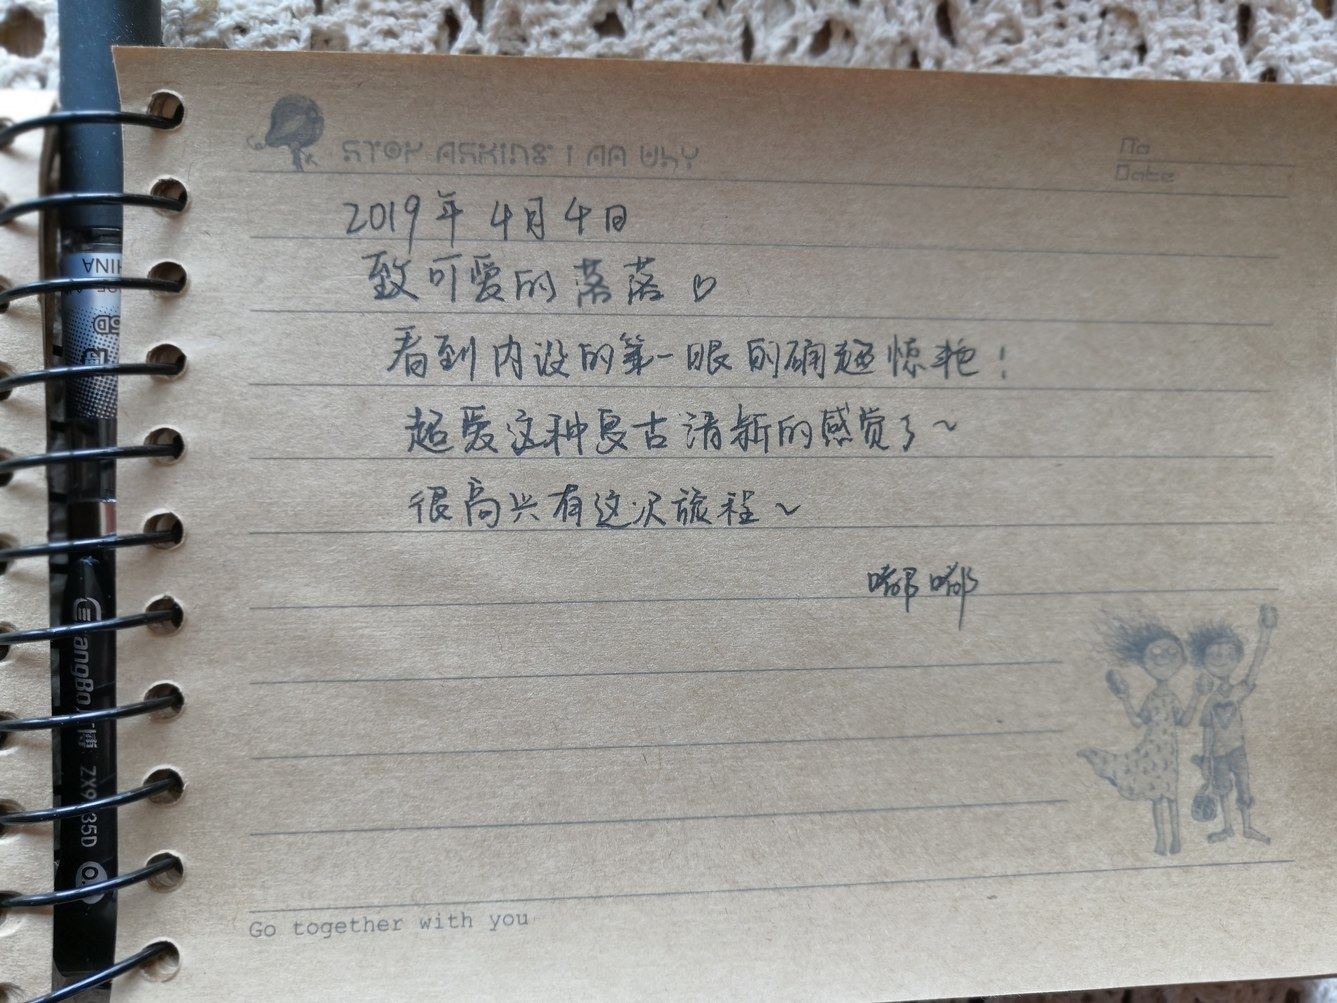 STOP ASKING I AM WHY
No
Date
2019年4月4日
致可爱的落落♡
看到内设的第一眼的确超惊艳！
超爱这种复古清新的感觉了~
很高兴有这次旅程~
嘟嘟
Go together with you